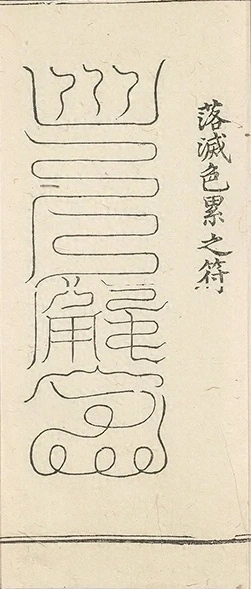 落滅色累之符